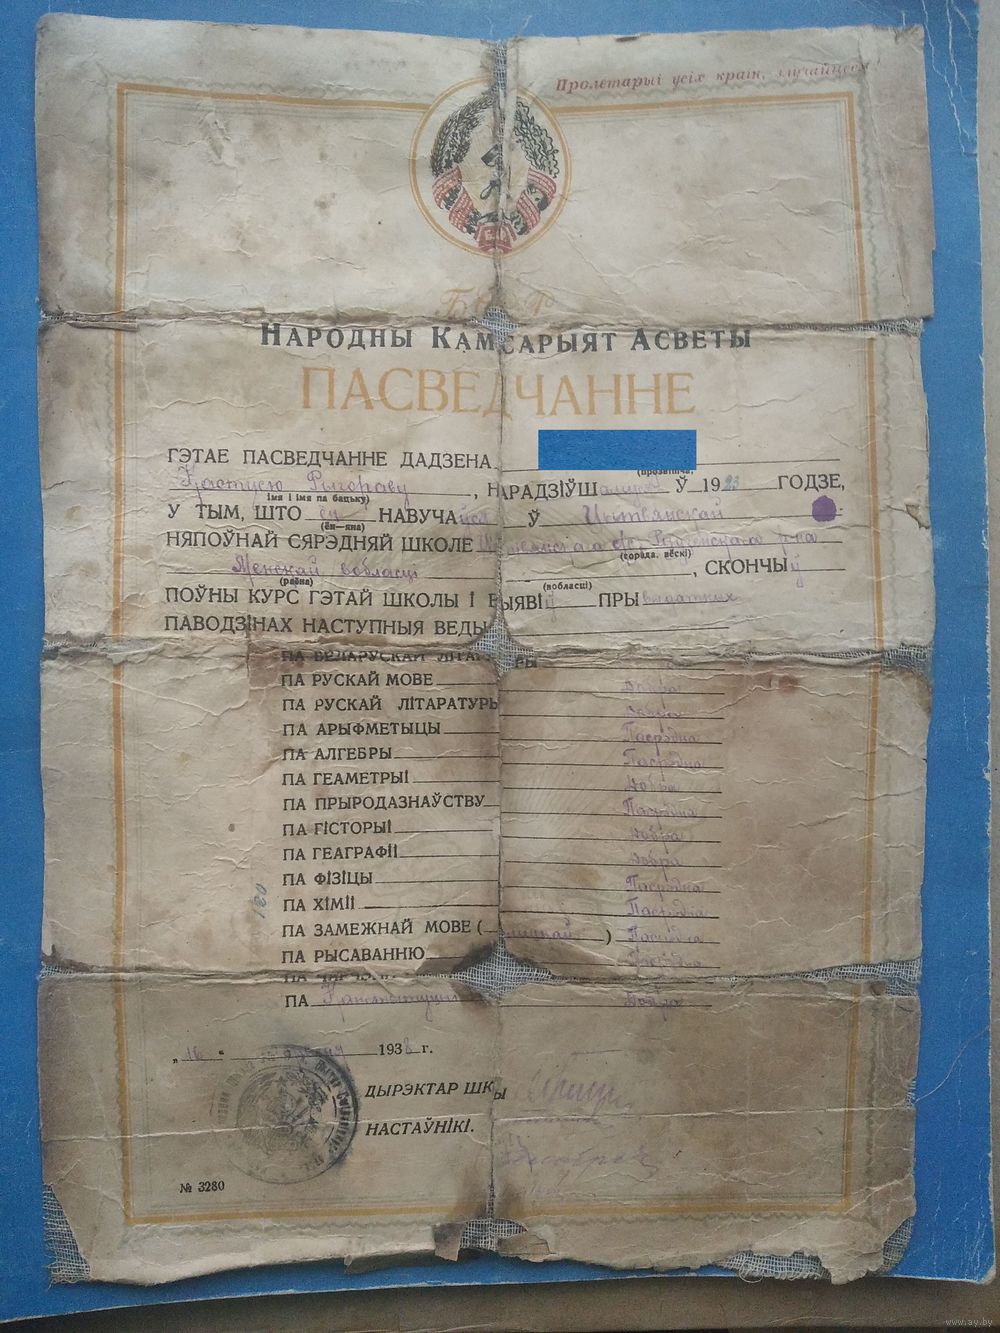 Пролетарыі ўсіх краін, злучайцеся!
НАРОДНЫ КАМІСАРЫЯТ АСВЕТЫ
ПАСВЕДЧАННЕ
ГЭТАЕ ПАСВЕДЧАННЕ ДАДЗЕНА
(прозвішча,
Кастусю Рыгораву, НАРАДЗІЎШ Ў 1923 ГОДЗЕ,
імя і імя па бацьку)
У ТЫМ, ШТО ён НАВУЧАЎСЯ Ў
(ён—яна)
НЯПОЎНАЙ СЯРЭДНЯЙ ШКОЛЕ
(горада, вёскі)
Менскай вобласці, СКОНЧЫЎ
(раёна) (вобласці)
ПОЎНЫ КУРС ГЭТАЙ ШКОЛЫ І ВЫЯВІЎ ПРЫ выдатных
ПАВОДЗІНАХ НАСТУПНЫЯ ВЕДЫ
ПА БЕЛАРУСКАЙ ЛІТАРАТУРЫ
ПА РУСКАЙ МОВЕ добра
ПА РУСКАЙ ЛІТАРАТУРЫ
ПА АРЫФМЕТЫЦЫ Пасрэдна
ПА АЛГЕБРЫ Пасрэдна
ПА ГЕАМЕТРЫІ добра
ПА ПРЫРОДАЗНАЎСТВУ Пасрэдна
ПА ГІСТОРЫІ добра
ПА ГЕАГРАФІІ добра
ПА ФІЗІЦЫ Пасрэдна
ПА ХІМІІ Пасрэдна
ПА ЗАМЕЖНАЙ МОВЕ ( ) Пасрэдна
ПА РЫСАВАННЮ Пасрэдна
ПА Канстытуцыі Добра
„16“ 1938 г.
ДЫРЭКТАР ШКОЛЫ
НАСТАЎНІКІ.
№ 3280
www.ay.by